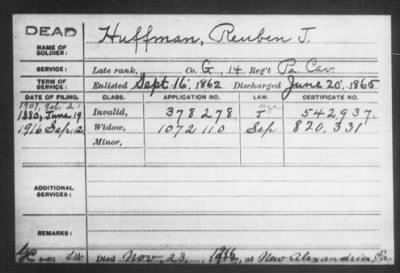 DEAD
NAME OF SOLDIER: Huffman, Reuben J.
SERVICE: Late rank, Co. G, 14 Reg't Pa Cav.
TERM OF SERVICE: Enlisted Sept. 16, 1862 Discharged June 20, 1865
DATE OF FILING. CLASS. APPLICATION NO. LAW. CERTIFICATE NO.
1907, Feb 21 age
1880, June 19 Invalid, 378278 J 542937.
1916 Sep 12 Widow, 1072110 Sep 820.331
Minor,
ADDITIONAL SERVICES:
REMARKS:
Died Nov. 23, 1916, at New Alexandria, Pa